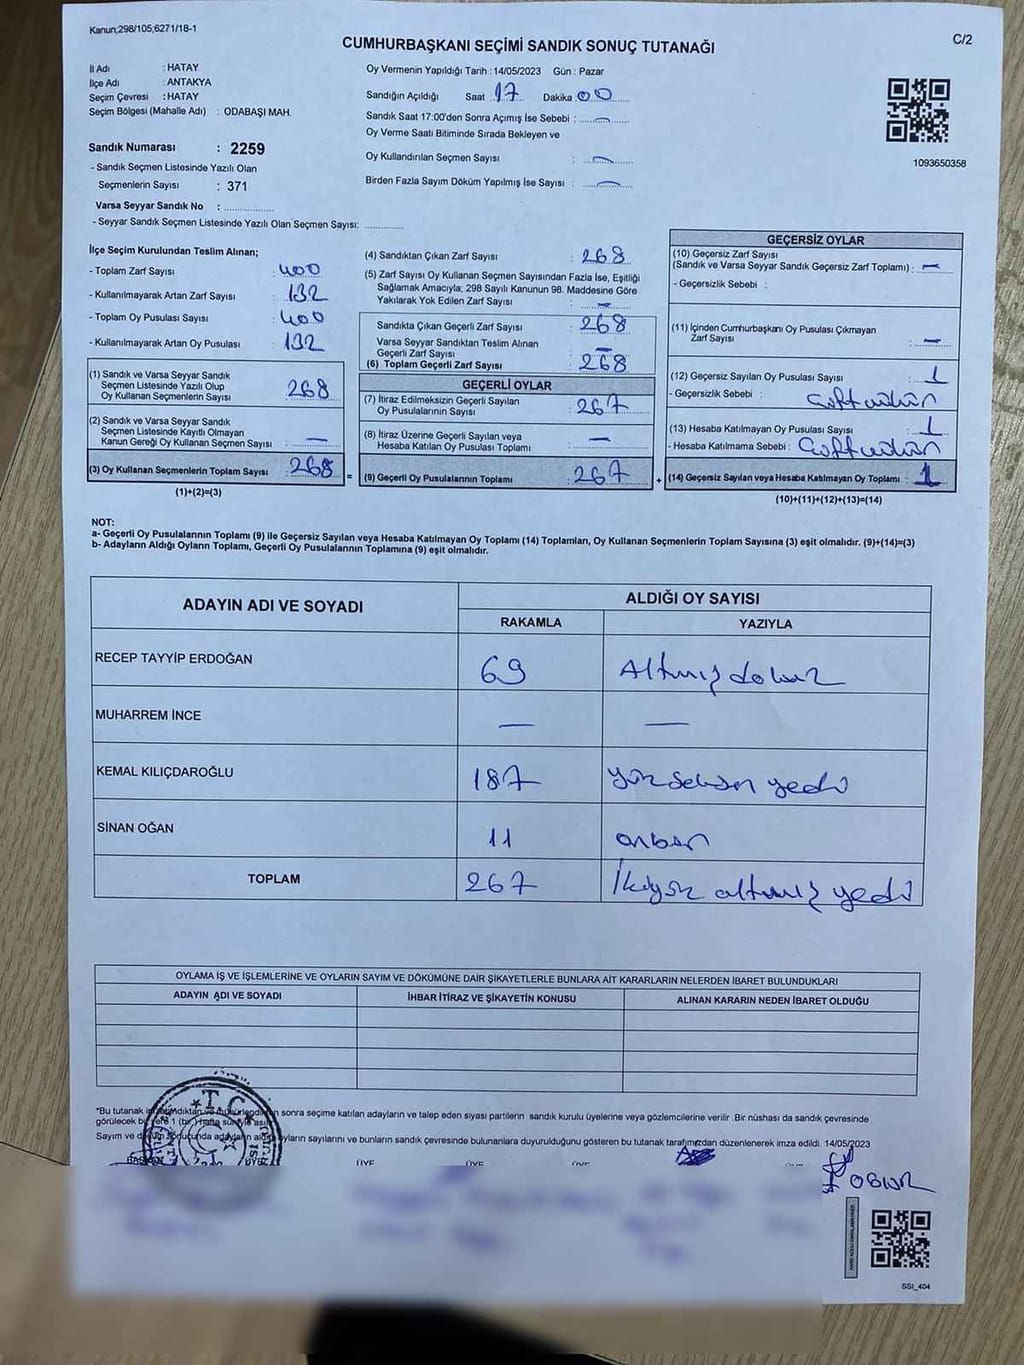 Kanun;298/105,6271/18-1
C/2
CUMHURBAŞKANI SEÇİMİ SANDIK SONUÇ TUTANAĞI
İl Adı : HATAY
İlçe Adı : ANTAKYA
Seçim Çevresi : HATAY
Seçim Bölgesi (Mahalle Adı) : ODABAŞI MAH.
Oy Vermenin Yapıldığı Tarih : 14/05/2023 Gün : Pazar
Sandığın Açıldığı Saat 17 Dakika 00
Sandık Saat 17:00'den Sonra Açımış İse Sebebi : —
Oy Verme Saati Bitiminde Sırada Bekleyen ve
Oy Kullandırılan Seçmen Sayısı : —
Birden Fazla Sayım Döküm Yapılmış İse Sayısı : —
1093650358
Sandık Numarası : 2259
- Sandık Seçmen Listesinde Yazılı Olan
Seçmenlerin Sayısı : 371
Varsa Seyyar Sandık No :
- Seyyar Sandık Seçmen Listesinde Yazılı Olan Seçmen Sayısı:
İlçe Seçim Kurulundan Teslim Alınan;
- Toplam Zarf Sayısı : 400
- Kullanılmayarak Artan Zarf Sayısı : 132
- Toplam Oy Pusulası Sayısı : 400
- Kullanılmayarak Artan Oy Pusulası : 132
(1) Sandık ve Varsa Seyyar Sandık
Seçmen Listesinde Yazılı Olup
Oy Kullanan Seçmenlerin Sayısı : 268
(2) Sandık ve Varsa Seyyar Sandık
Seçmen Listesinde Kayıtlı Olmayan
Kanun Gereği Oy Kullanan Seçmen Sayısı : —
(3) Oy Kullanan Seçmenlerin Toplam Sayısı : 268
(1)+(2)=(3)
(4) Sandıktan Çıkan Zarf Sayısı : 268
(5) Zarf Sayısı Oy Kullanan Seçmen Sayısından Fazla İse, Eşitliği
Sağlamak Amacıyla; 298 Sayılı Kanunun 98. Maddesine Göre
Yakılarak Yok Edilen Zarf Sayısı : —
Sandıkta Çıkan Geçerli Zarf Sayısı : 268
Varsa Seyyar Sandıktan Teslim Alınan
Geçerli Zarf Sayısı : —
(6) Toplam Geçerli Zarf Sayısı : 268
GEÇERLİ OYLAR
(7) İtiraz Edilmeksizin Geçerli Sayılan
Oy Pusulalarının Sayısı : 267
(8) İtiraz Üzerine Geçerli Sayılan veya
Hesaba Katılan Oy Pusulası Toplamı : —
= (9) Geçerli Oy Pusulalarının Toplamı : 267
GEÇERSİZ OYLAR
(10) Geçersiz Zarf Sayısı
(Sandık ve Varsa Seyyar Sandık Geçersiz Zarf Toplamı) : —
- Geçersizlik Sebebi :
(11) İçinden Cumhurbaşkanı Oy Pusulası Çıkmayan
Zarf Sayısı : —
(12) Geçersiz Sayılan Oy Pusulası Sayısı : 1
- Geçersizlik Sebebi :
(13) Hesaba Katılmayan Oy Pusulası Sayısı : 1
- Hesaba Katılmama Sebebi :
+ (14) Geçersiz Sayılan veya Hesaba Katılmayan Oy Toplamı : 1
(10)+(11)+(12)+(13)=(14)
NOT:
a- Geçerli Oy Pusulalarının Toplamı (9) ile Geçersiz Sayılan veya Hesaba Katılmayan Oy Toplamı (14) Toplamları, Oy Kullanan Seçmenlerin Toplam Sayısına (3) eşit olmalıdır. (9)+(14)=(3)
b- Adayların Aldığı Oyların Toplamı, Geçerli Oy Pusulalarının Toplamına (9) eşit olmalıdır.
ADAYIN ADI VE SOYADI
ALDIĞI OY SAYISI
RAKAMLA YAZIYLA
RECEP TAYYİP ERDOĞAN 69 Altmış dokuz
MUHARREM İNCE — —
KEMAL KILIÇDAROĞLU 187 yüz seksen yedi
SİNAN OĞAN 11 onbir
TOPLAM 267 İkiyüz altmış yedi
OYLAMA İŞ VE İŞLEMLERİNE VE OYLARIN SAYIM VE DÖKÜMÜNE DAİR ŞİKAYETLERLE BUNLARA AİT KARARLARIN NELERDEN İBARET BULUNDUKLARI
ADAYIN ADI VE SOYADI İHBAR İTİRAZ VE ŞİKAYETİN KONUSU ALINAN KARARIN NEDEN İBARET OLDUĞU
*Bu tutanak sonra seçime katılan adayların ve talep eden siyasi partilerin sandık kurulu üyelerine veya gözlemcilerine verilir. Bir nüshası da sandık çevresinde
görülecek bir yere 1 (bir) hafta süreyle asılır.
Sayım ve döküm sonucunda adayların aldığı oyların sayılarını ve bunların sandık çevresinde bulunanlara duyurulduğunu gösteren bu tutanak tarafımızdan düzenlenerek imza edildi. 14/05/2023
T.C.
BAŞKAN ÜYE ÜYE ÜYE ÜYE ÜYE
SSI_404